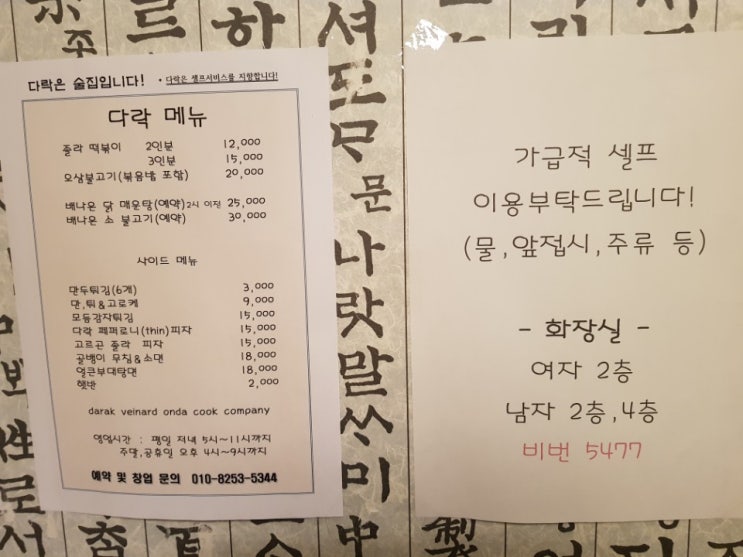 다락은 술집입니다! · 다락은 셀프서비스를 지향합니다!
다락 메뉴
졸라 떡볶이 2인분 12,000
3인분 15,000
오삼불고기(볶음밥 포함) 20,000
배나온 닭 매운탕(예약)2시 이전 25,000
배나온 소 불고기(예약) 30,000
사이드 메뉴
만두튀김(6개) 3,000
만,튀&고로케 9,000
모듬감자튀김 15,000
다락 페퍼로니(thin)피자 15,000
고르곤 졸라 피자 15,000
골뱅이 무침&소면 18,000
얼큰부대탕면 18,000
햇반 2,000
darak veinard onda cook company
영업시간 : 평일 저녁 5시~11시까지
주말,공휴일 오후 4시~9시까지
예약 및 창업 문의 010-8253-5344
가급적 셀프
이용부탁드립니다!
(물,앞접시,주류 등)
- 화장실 -
여자 2층
남자 2층,4층
비번 5477
셔
문
나
랏
말
쓰
미
中